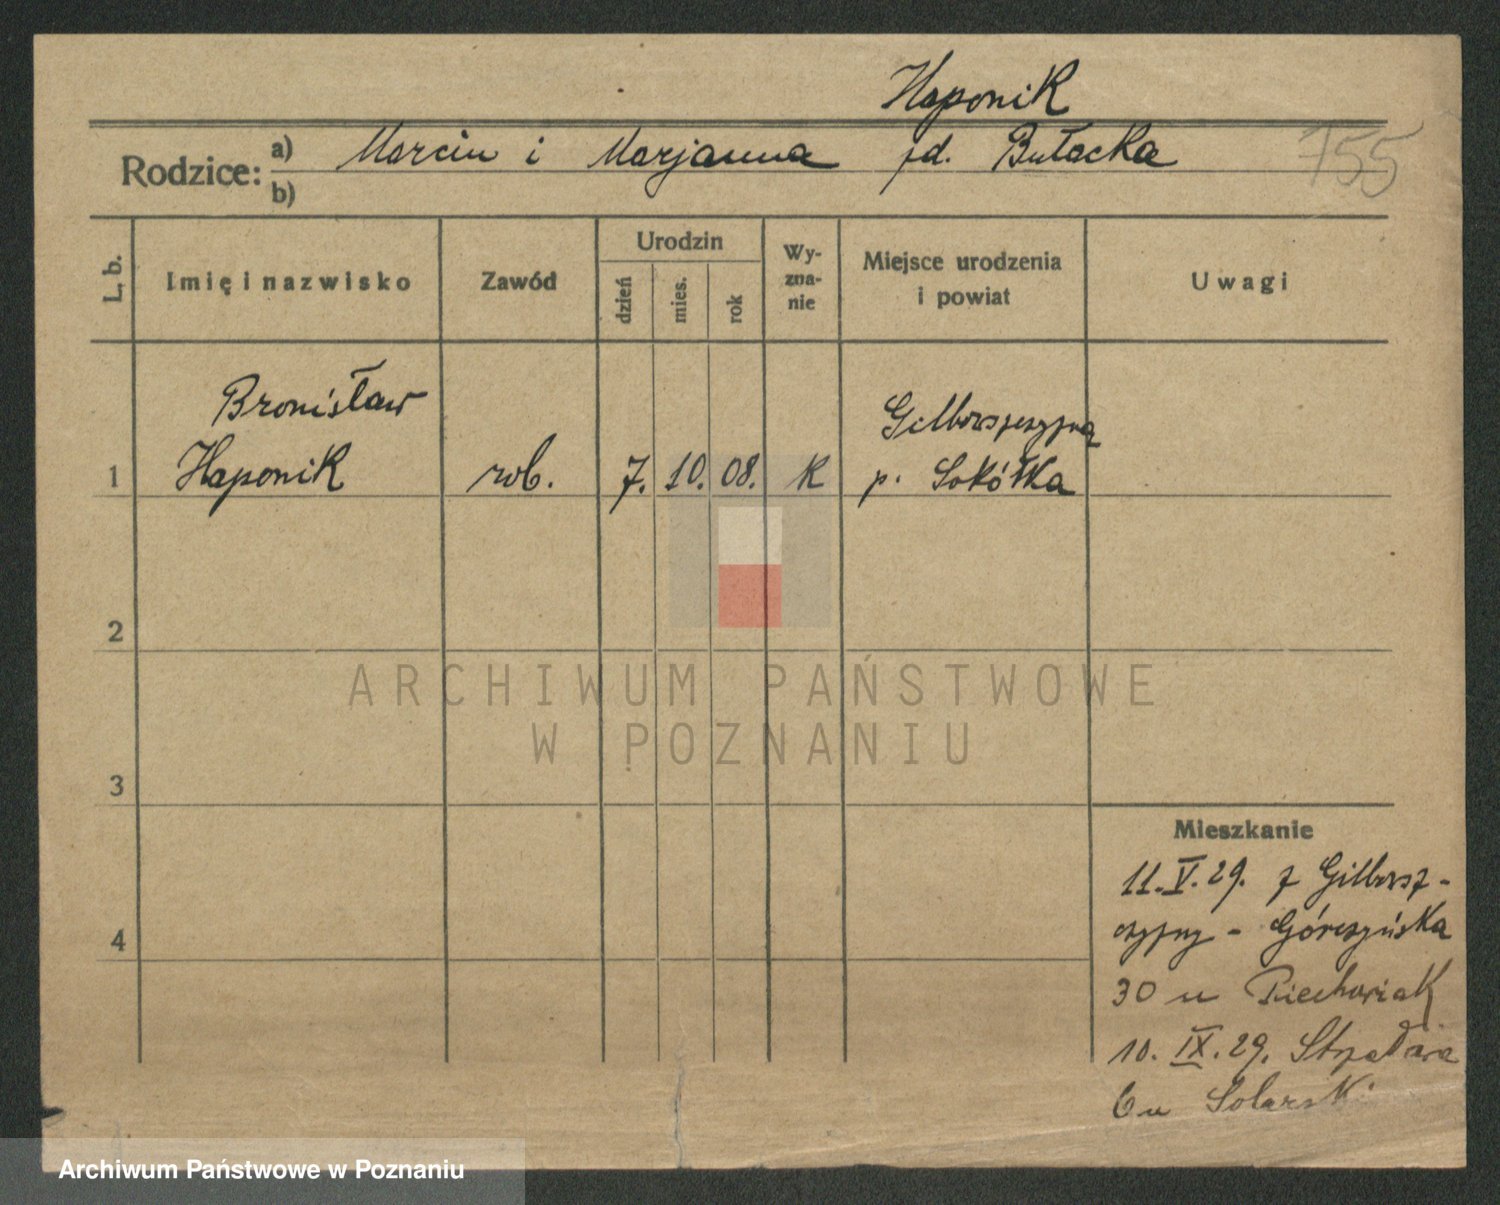 Haponik
Rodzice: a) Marcin i Marjanna zd. Bułacka
b)
755
L. b.
Imię i nazwisko
Zawód
Urodzin
dzień
mies.
rok
Wy-
zna-
nie
Miejsce urodzenia
i powiat
Uwagi
Bronisław
1 Haponik rob. 7. 10. 08. K
p. Sokółka
2
3
4
Mieszkanie
11.V.29. z
- Góreczyńska
30 u Piechowiak
10. IX. 29.
6 u Solarski
ARCHIWUM PAŃSTWOWE
W POZNANIU
Archiwum Państwowe w Poznaniu